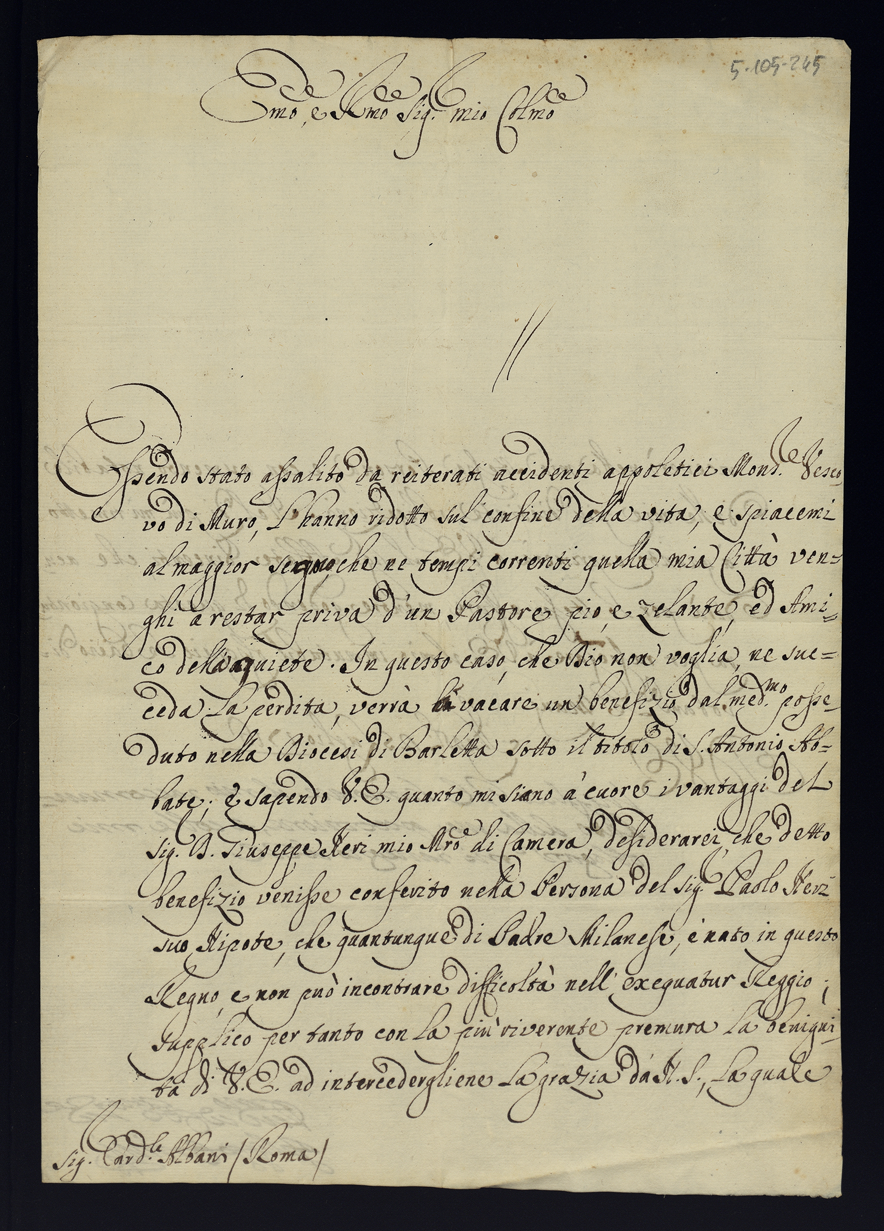 5-105-245
Emo, e Rmo Sig.r mio Colmo
Essendo stato assalito da reiterati accidenti appoletici Mons.re Vesco-
vo di Muro, l'hanno ridotto sul confine della vita, e spiacemi
al maggior segno, che ne tempi correnti quella mia Città ven=
ghi a restar priva d'un Pastore pio, e zelante, ed Ami=
co della quiete. In questo caso, che Dio non voglia, ne suc=
ceda la perdita, verrà à vacare un benefizio dal med.mo posse=
duto nella Diocesi di Barletta sotto il titolo di S. Antonio Ab=
bate; E sapendo V.E. quanto mi siano à cuore i vantaggi del
Sig.r D. Giuseppe Neri mio Mro di Camera, desiderarei, che detto
benefizio venisse conferito nella Persona del Sig.r Paolo Neri
suo Nipote, che quantunque di Padre Milanese, è nato in questo
Regno, e non può incontrare difficoltà nell'exequatur Reggio;
supplico per tanto con la più riverente premura la benigni=
tà di V.E. ad intercedergliene la grazia da N.S., la quale
Sig. Card.le Albani / Roma /